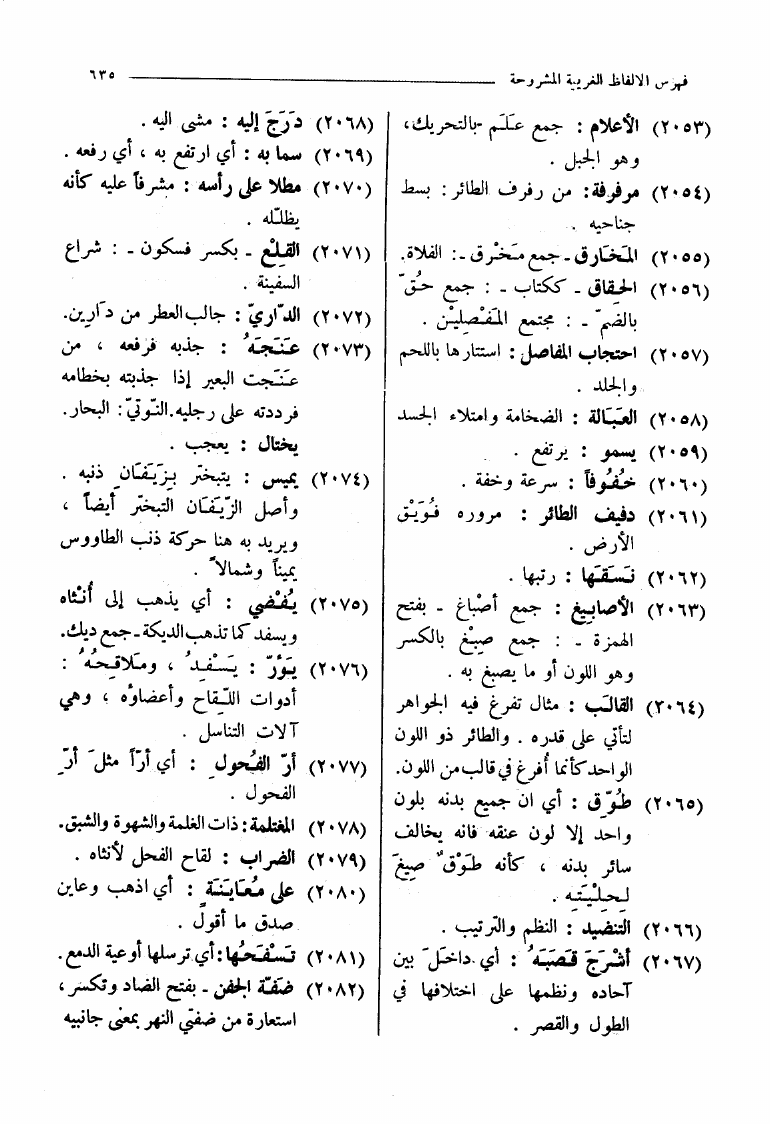 فهرس الالفاظ الغريبة المشروحة ٦٣٥
(٢٠٥٣) الأعلام : جمع عَلَم -بالتحريك،
وهو الجبل .
(٢٠٥٤) مرفوفة: من رفرف الطائر : بسط
جناحيه .
(٢٠٥٥) المَخارق - جمع مَخْرق -: الفلاة.
(٢٠٥٦) الحِقاق - ككتاب - : جمع حُقّ
بالضمّ - : مجتمع المَفْصِلَيْن .
(٢٠٥٧) احتجاب المفاصل : استتارها باللحم
والجلد .
(٢٠٥٨) العَبَالة : الضخامة وامتلاء الجسد
(٢٠٥٩) يسمو : يرتفع .
(٢٠٦٠) خُفُوفاً : سرعة وخفة .
(٢٠٦١) دفيف الطائر : مروره فُوَيْق
الأرض .
(٢٠٦٢) نَسَقَها : رتبها .
(٢٠٦٣) الأصابيغ : جمع أصْباغ - بفتح
الهمزة - : جمع صِبْغ بالكسر
وهو اللون أو ما يصبغ به .
(٢٠٦٤) القالَب : مثال تفرغ فيه الجواهر
لتأتي على قدره . والطائر ذو اللون
الواحد كأنما أُفرغ في قالب من اللون.
(٢٠٦٥) طُوّق : أي ان جميع بدنه بلون
واحد إلا لون عنقه فانه يخالف
سائر بدنه ، كأنه طَوْقٌ صِيغَ
لِحِلْيَتِه .
(٢٠٦٦) التنضيد : النظم والترتيب .
(٢٠٦٧) أشْرَجَ قَصَبَهُ : أي داخَلَ بين
آحاده ونظمها على اختلافها في
الطول والقصر .
(٢٠٦٨) دَرَجَ إليه : مشى اليه .
(٢٠٦٩) سما به : أي ارتفع به ، أي رفعه .
(٢٠٧٠) مطلا على رأسه : مشرفاً عليه كأنه
يظلّله .
(٢٠٧١) القِلْع - بكسر فسكون - : شراع
السفينة .
(٢٠٧٢) الدّاريّ : جالب العطر من دارِين.
(٢٠٧٣) عَنَجَهُ : جذبه فرفعه ، من
عَنَجت البعير إذا جذبته بخطامه
فرددته على رجليه.النّوتيّ: البحار.
يختال : يعجب .
(٢٠٧٤) يميس : يتبختر بِزَيَفَانِ ذنبه .
وأصل الزّيَفَان التبختر أيضاً ،
ويريد به هنا حركة ذنب الطاووس
يميناً وشمالاً .
(٢٠٧٥) يُفْضي : أي يذهب إلى أُنْثاه
ويسفد كما تذهب الديكة - جمع ديك.
(٢٠٧٦) يَؤرّ : يَسْفِدُ ، ومَلاقِحُهُ :
أدوات اللّقاح وأعضاؤه ، وهي
آلات التناسل .
(٢٠٧٧) أرّ الفُحولِ : أي أرّاً مثلَ أرّ
الفحول .
(٢٠٧٨) المغتلمة : ذات الغلمة والشهوة والشبق.
(٢٠٧٩) الضراب : لقاح الفحل لأنثاه .
(٢٠٨٠) على مُعَايَنَةٍ : أي اذهب وعاين
صدق ما أقول .
(٢٠٨١) تَسْفَحُها : أي ترسلها أوعية الدمع.
(٢٠٨٢) ضَفّة الجفن - بفتح الضاد وتكسر،
استعارة من ضفتي النهر بمعنى جانبيه